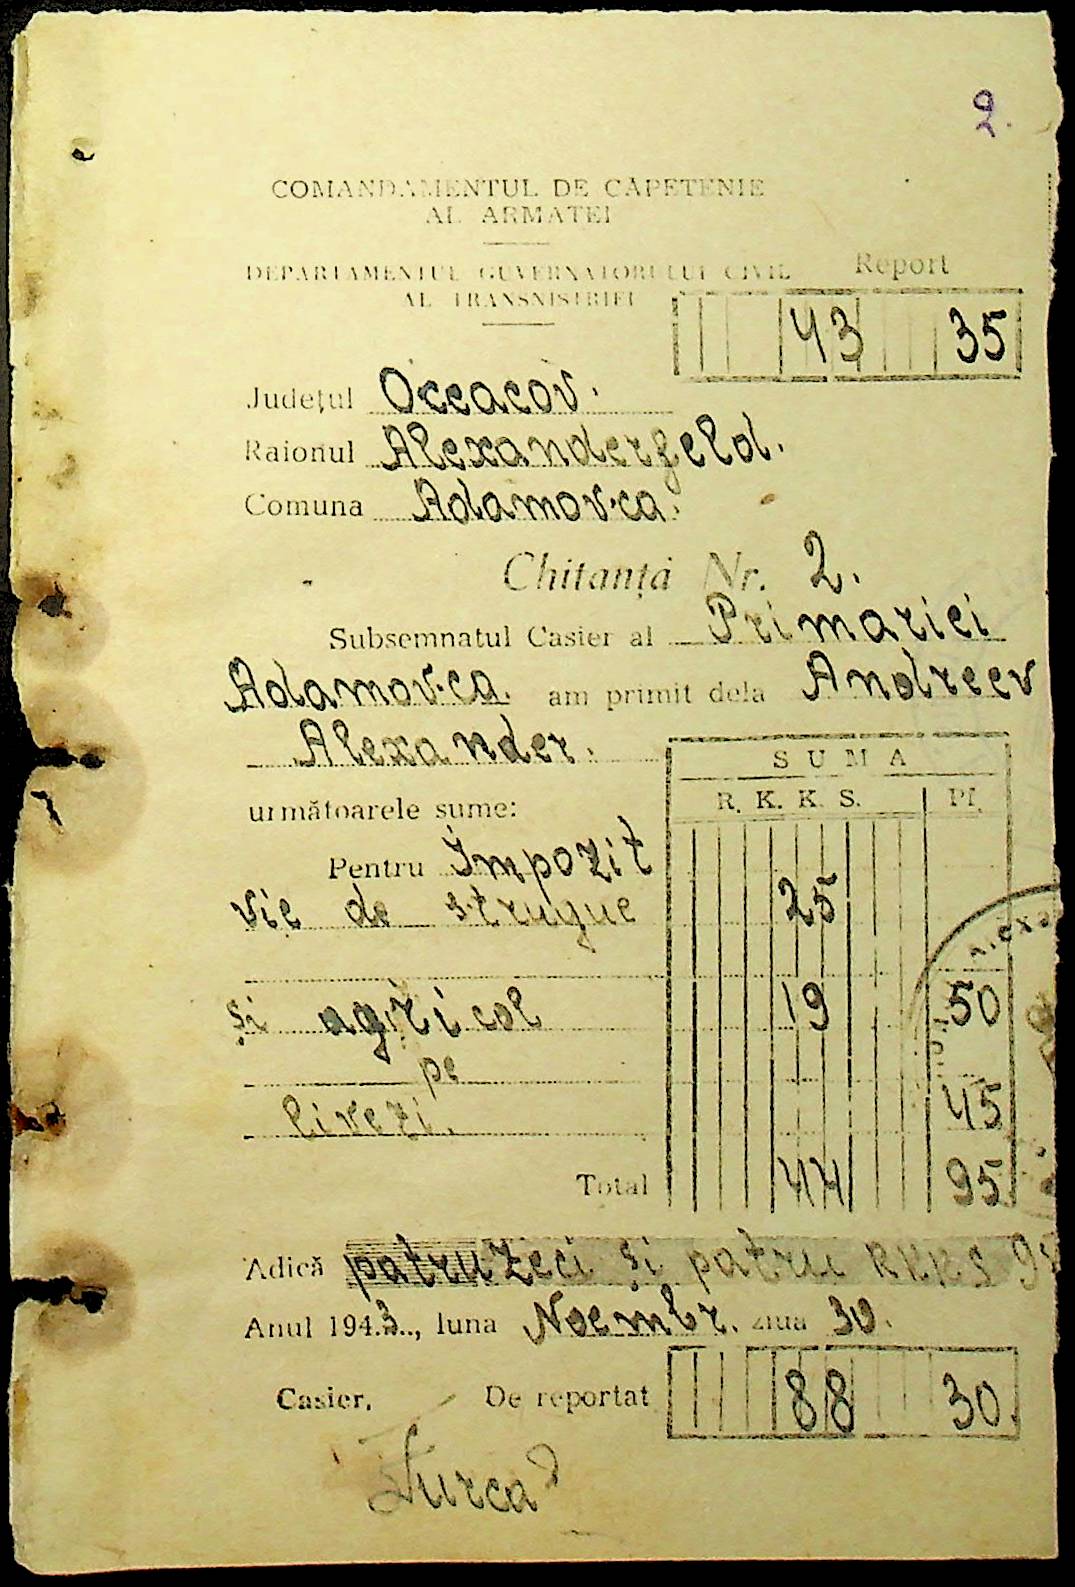 2.
COMANDAMENTUL DE CĂPETENIE
AL ARMATEI
DEPARTAMENTUL GUVERNATORULUI CIVIL
AL TRANSNISTRIEI
Report
43 35
Județul Oceacov.
Raionul Alexanderfeld.
Comuna Adamovca.
Chitanță Nr. 2.
Subsemnatul Casier al Primariei
Adamovca. am primit dela Andreev
Alexander.
SUMA
următoarele sume: R. K. K. S. Pf.
Pentru Impozit
vie de strugue 25
și agricol 19 50
pe
livezi. 45
Total 44 95
Adică patruzeci și patru RKKS 95
Anul 1943.., luna Noembr. ziua 30.
Casier, De reportat 88 30.